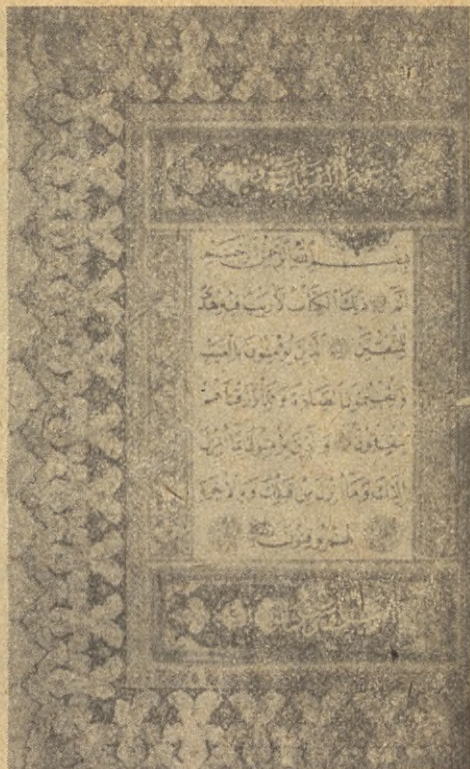 بسم الله الرحمن الرحيم
الم ذلك الكتاب لا ريب فيه هدى
للمتقين الذين يؤمنون بالغيب
ويقيمون الصلوة ومما رزقناهم
ينفقون والذين يؤمنون بما انزل
اليك وما انزل من قبلك وبالاخرة
هم يوقنون